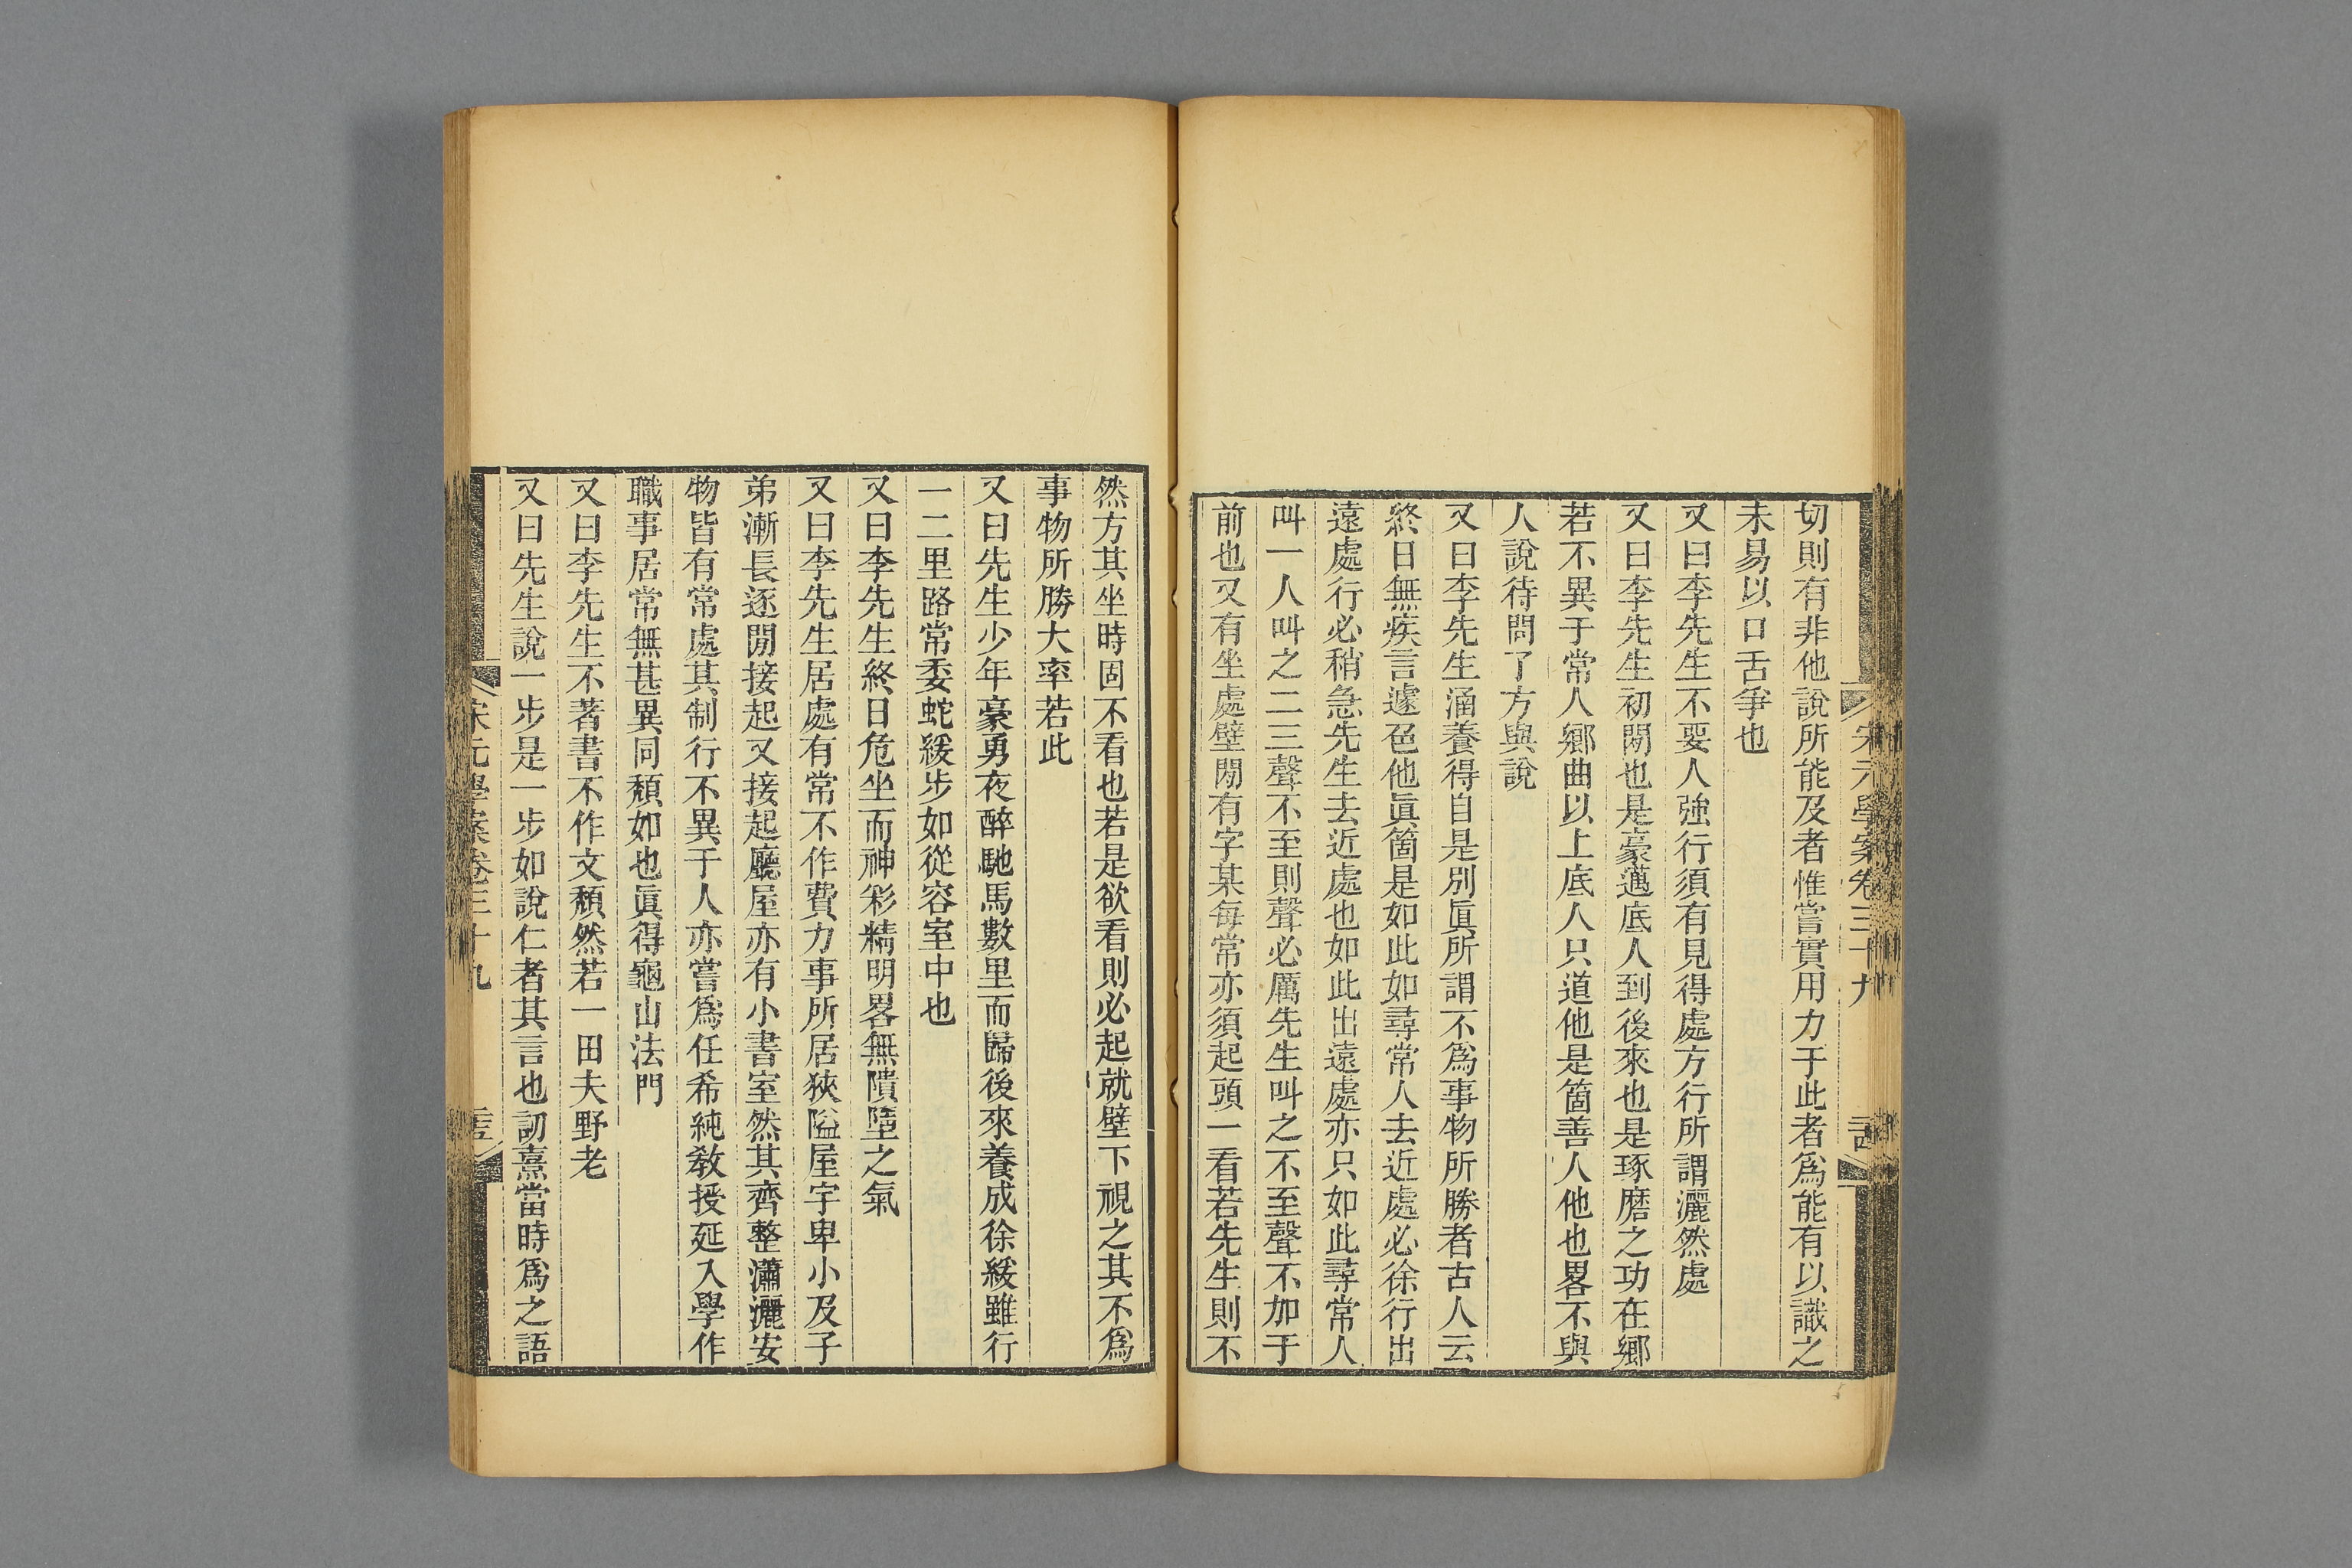 宋元學案卷三十九
切則有非他說所能及者惟嘗實用力于此者爲能有以識之
未易以口舌爭也
又曰李先生不要人強行須有見得處方行所謂灑然處
又曰李先生初閒也是豪邁底人到後來也是琢磨之功在鄉
若不異于常人鄉曲以上底人只道他是箇善人他也畧不與
人說待問了方與說
又曰李先生涵養得自是別眞所謂不爲事物所勝者古人云
終日無疾言遽色他眞箇是如此如尋常人去近處必徐行出
遠處行必稍急先生去近處也如此出遠處亦只如此尋常人
叫一人叫之二三聲不至則聲必厲先生叫之不至聲不加于
前也又有坐處壁閒有字某每常亦須起頭一看若先生則不
然方其坐時固不看也若是欲看則必起就壁下視之其不爲
事物所勝大率若此
又曰先生少年豪勇夜醉馳馬數里而歸後來養成徐緩雖行
一二里路常委蛇緩步如從容室中也
又曰李先生終日危坐而神彩精明畧無隤墮之氣
又曰李先生居處有常不作費力事所居狹隘屋宇卑小及子
弟漸長逐閒接起又接起廳屋亦有小書室然其齊整瀟灑安
物皆有常處其制行不異于人亦嘗爲任希純教授延入學作
職事居常無甚異同頹如也眞得龜山法門
又曰李先生不著書不作文頹然若一田夫野老
又曰先生說一步是一步如說仁者其言也訒熹當時爲之語
宋元學案卷三十九